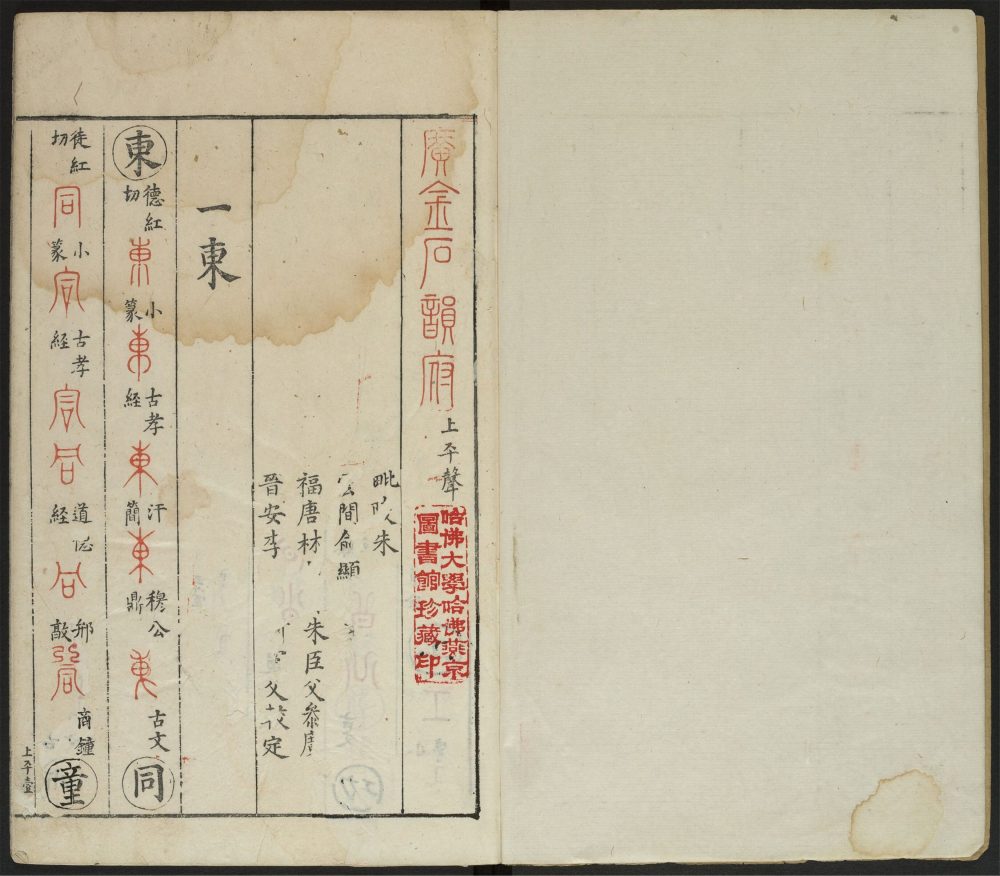 廣金石韻府上平聲
哈佛大學哈佛燕京
圖書館珍藏印
毗 朱
雲間俞顯
福唐林 朱臣父參
晉安李 父 定
一東
東德紅切東小篆東古孝經東汗簡東穆公鼎東古文同
徒紅切同小篆同古孝經同同道 經同 敲同商鐘童
上平壹